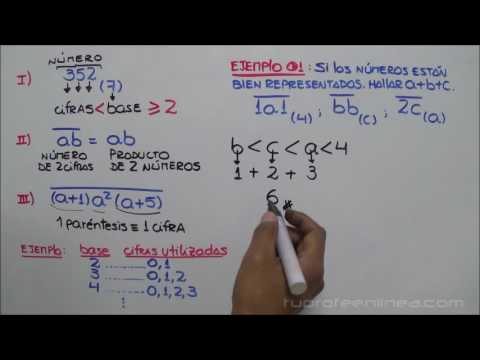 I) NÚMERO
352 (7)
CIFRAS < base ≥ 2
II) ab = ab
NÚMERO DE 2 CIFRAS
PRODUCTO DE 2 NÚMEROS
III) (a+1) a² (a+5)
1 paréntesis ≡ 1 CIFRA
EJEMPlo: base cifras utilizadas
2 ........ 0,1
3 ........ 0,1,2
4 ........ 0,1,2,3
⋮
EJEMPLO 01: Si los NÚMEROS ESTÁN
BIEN REPRESENTADOS. HALLAR a+b+c.
1a1 (4) ; bb (c) ; 2c (a)
b < c < a < 4
1 + 2 + 3
6 *
tuprofeenlinea.com